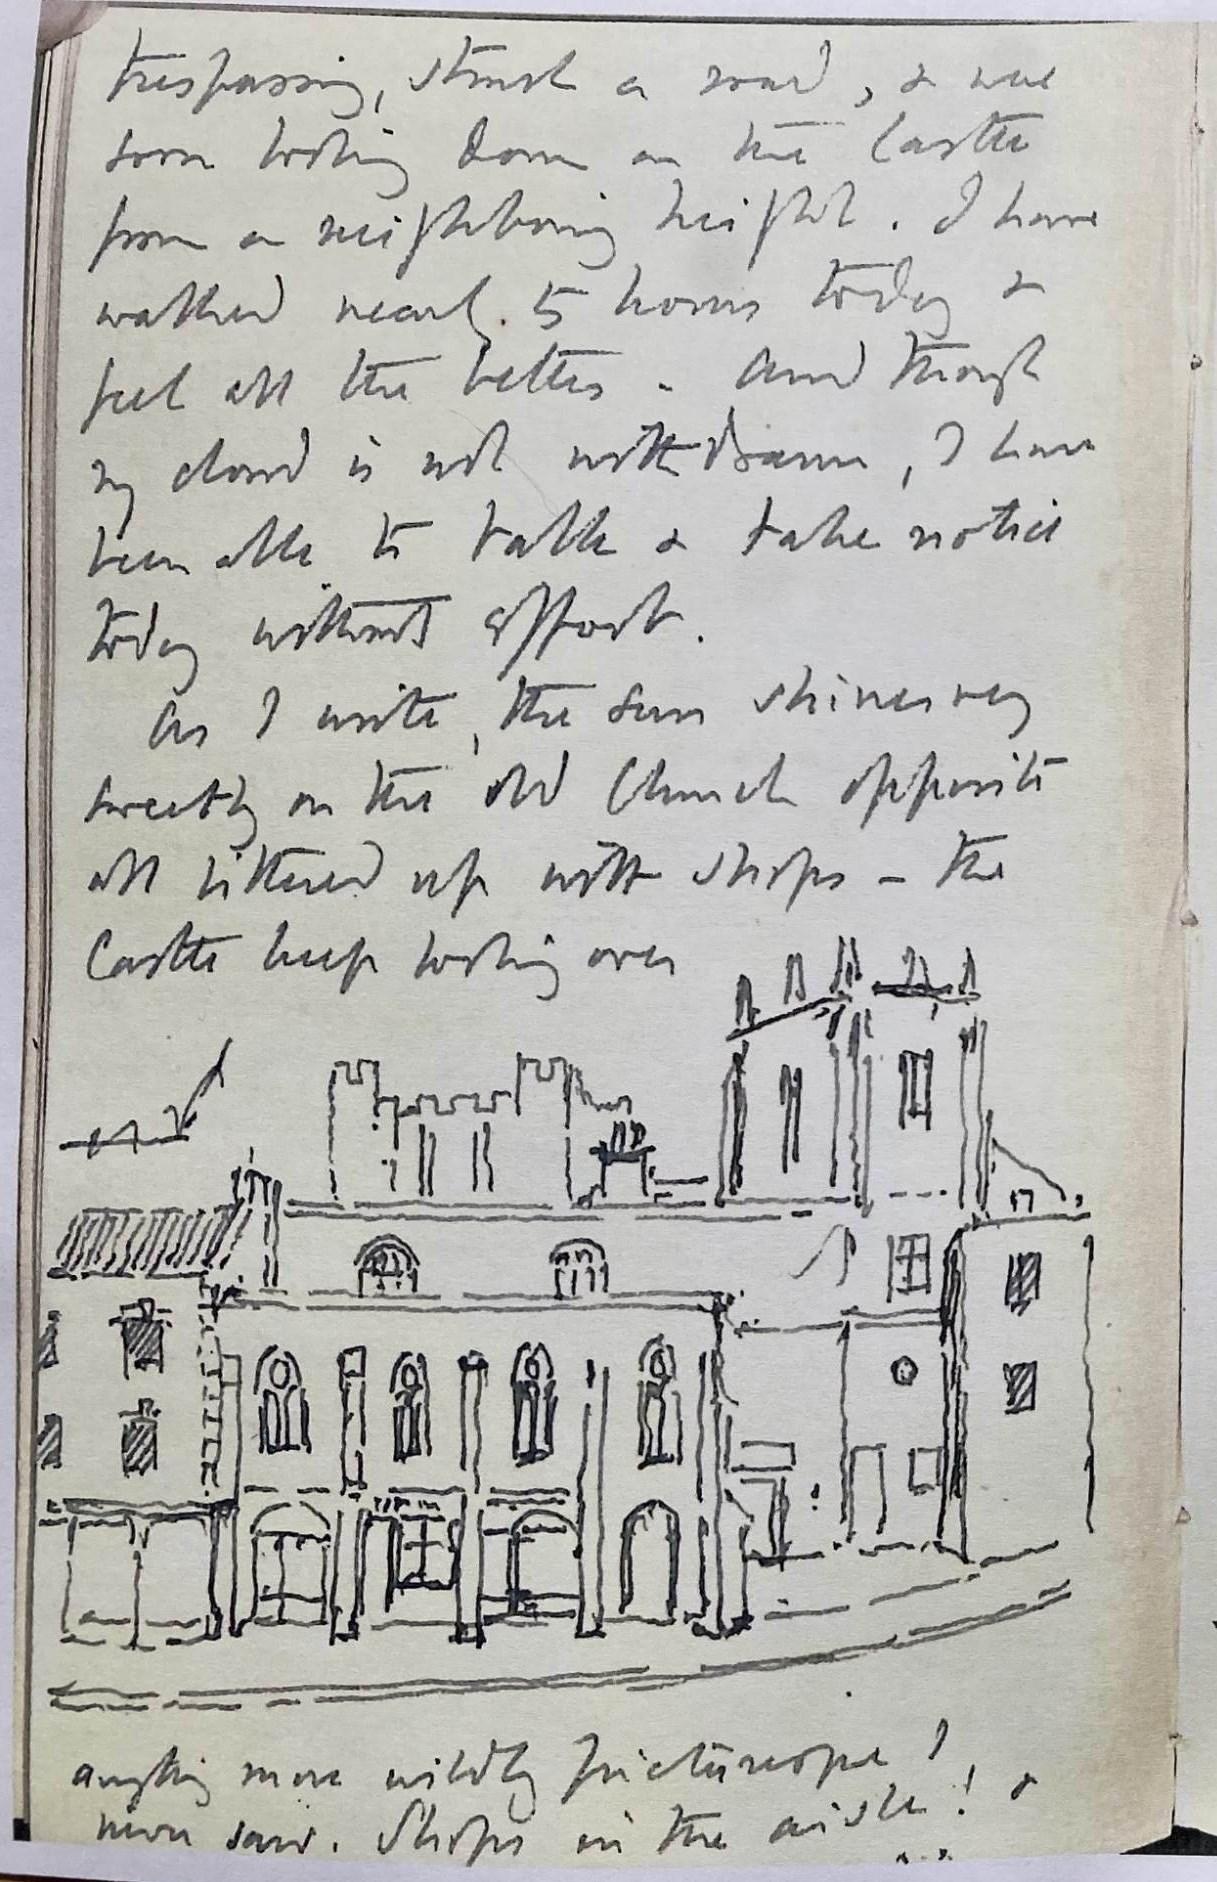 trespassing, struck a road, & was
soon looking down on the Castle
from a neighbouring height. I have
walked nearly 5 hours today &
feel all the better. And though
my cloud is not withdrawn, I have
been able to talk & take notice
today without effort.
As I write, the sun shines very
sweetly on the old Church opposite
all littered up with shops – the
Castle keep looking over
anything more wildly picturesque I
never saw. Shops in the aisle! &